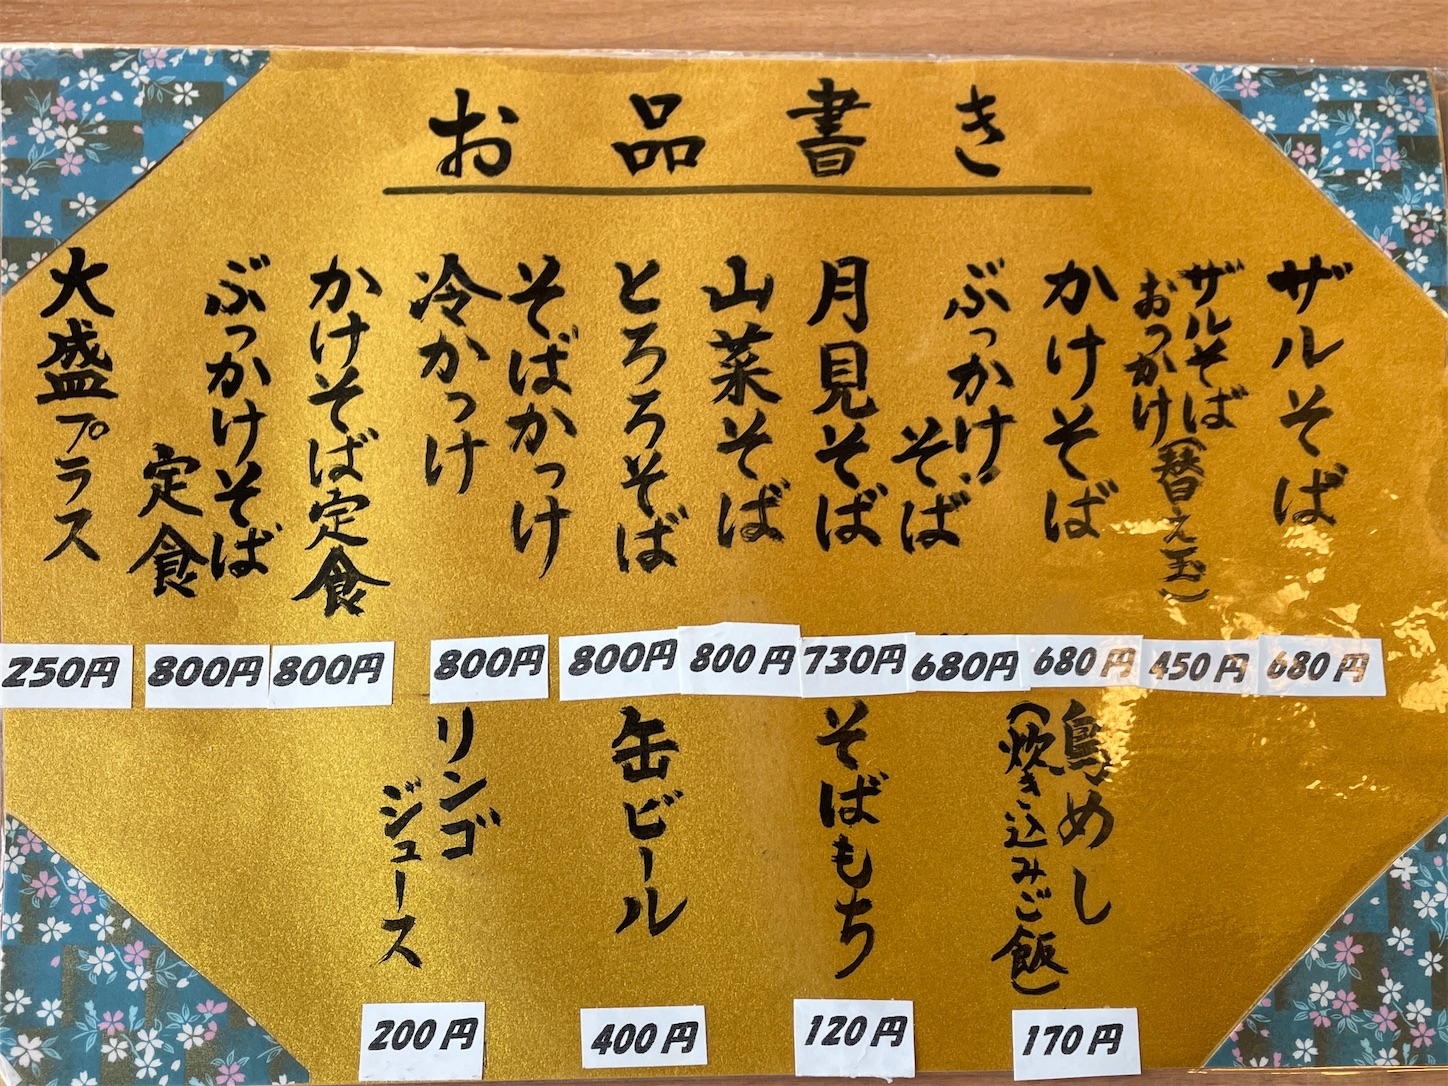 お品書き
ザルそば
680円
ザルそば
おっかけ(替え玉)
450円
かけそば
680円
ぶっかけ
そば
680円
月見そば
730円
山菜そば
800円
とろろそば
800円
そばかっけ
冷かっけ
800円
かけそば定食
800円
ぶっかけそば
定食
800円
大盛プラス
250円
鳥めし
(炊き込みご飯)
170円
そばもち
120円
缶ビール
400円
リンゴ
ジュース
200円